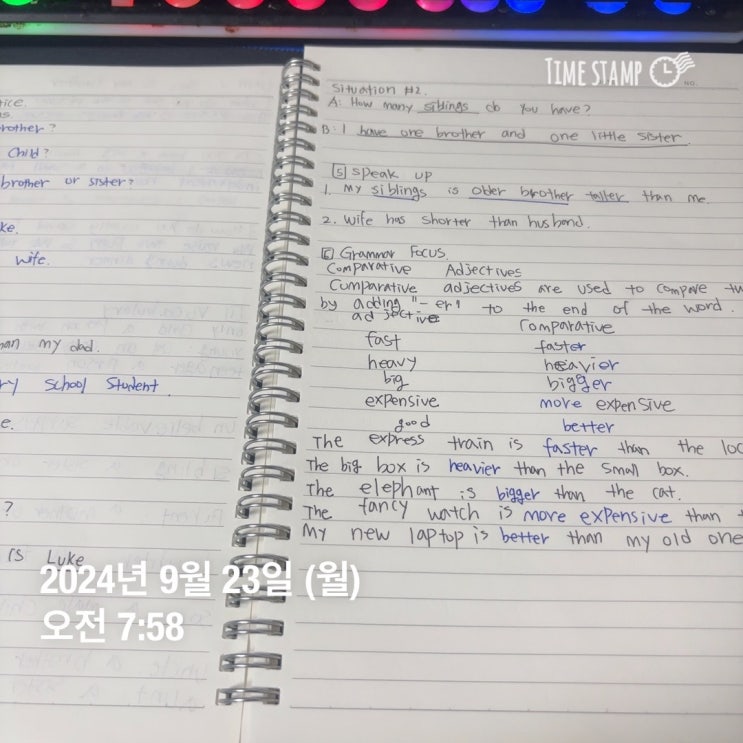 TIME STAMP
NO.
tice.
rother?
Child?
brother or sister?
ke.
wife.
han my dad.
ry School Student.
e.
?
is Luke
Situation #2.
A: How many siblings do you have?
B: I have one brother and one little sister.
[5] Speak up
1. My siblings is older brother taller than me.
2. Wife has shorter than husband.
[6] Grammar Focus
Comparative Adjectives
Cumparative adjectives are used to compare tw
by adding "-er" to the end of the word.
adjective Comparative
fast faster
heavy heavier
big bigger
expensive more expensive
good better
The express train is faster than the loc
The big box is heavier than the small box.
The elephant is bigger than the cat.
The fancy watch is more expensive than t
My new laptop is better than my old one
2024년 9월 23일 (월)
오전 7:58